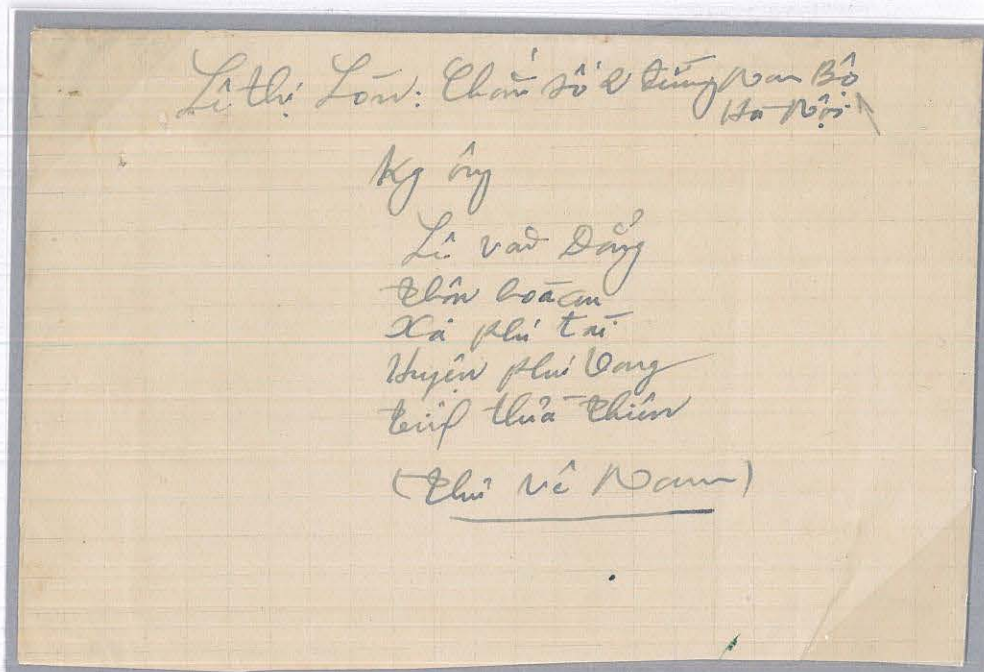 Lê thị Lòn: Chắn số 2 đường Nam Bộ
Hà Nội
Kg ông
Lê văn Dỗng
thôn hoà an
Xã phú tài
Huyện phú Vang
tỉnh thừa thiên
(thư về Nam)